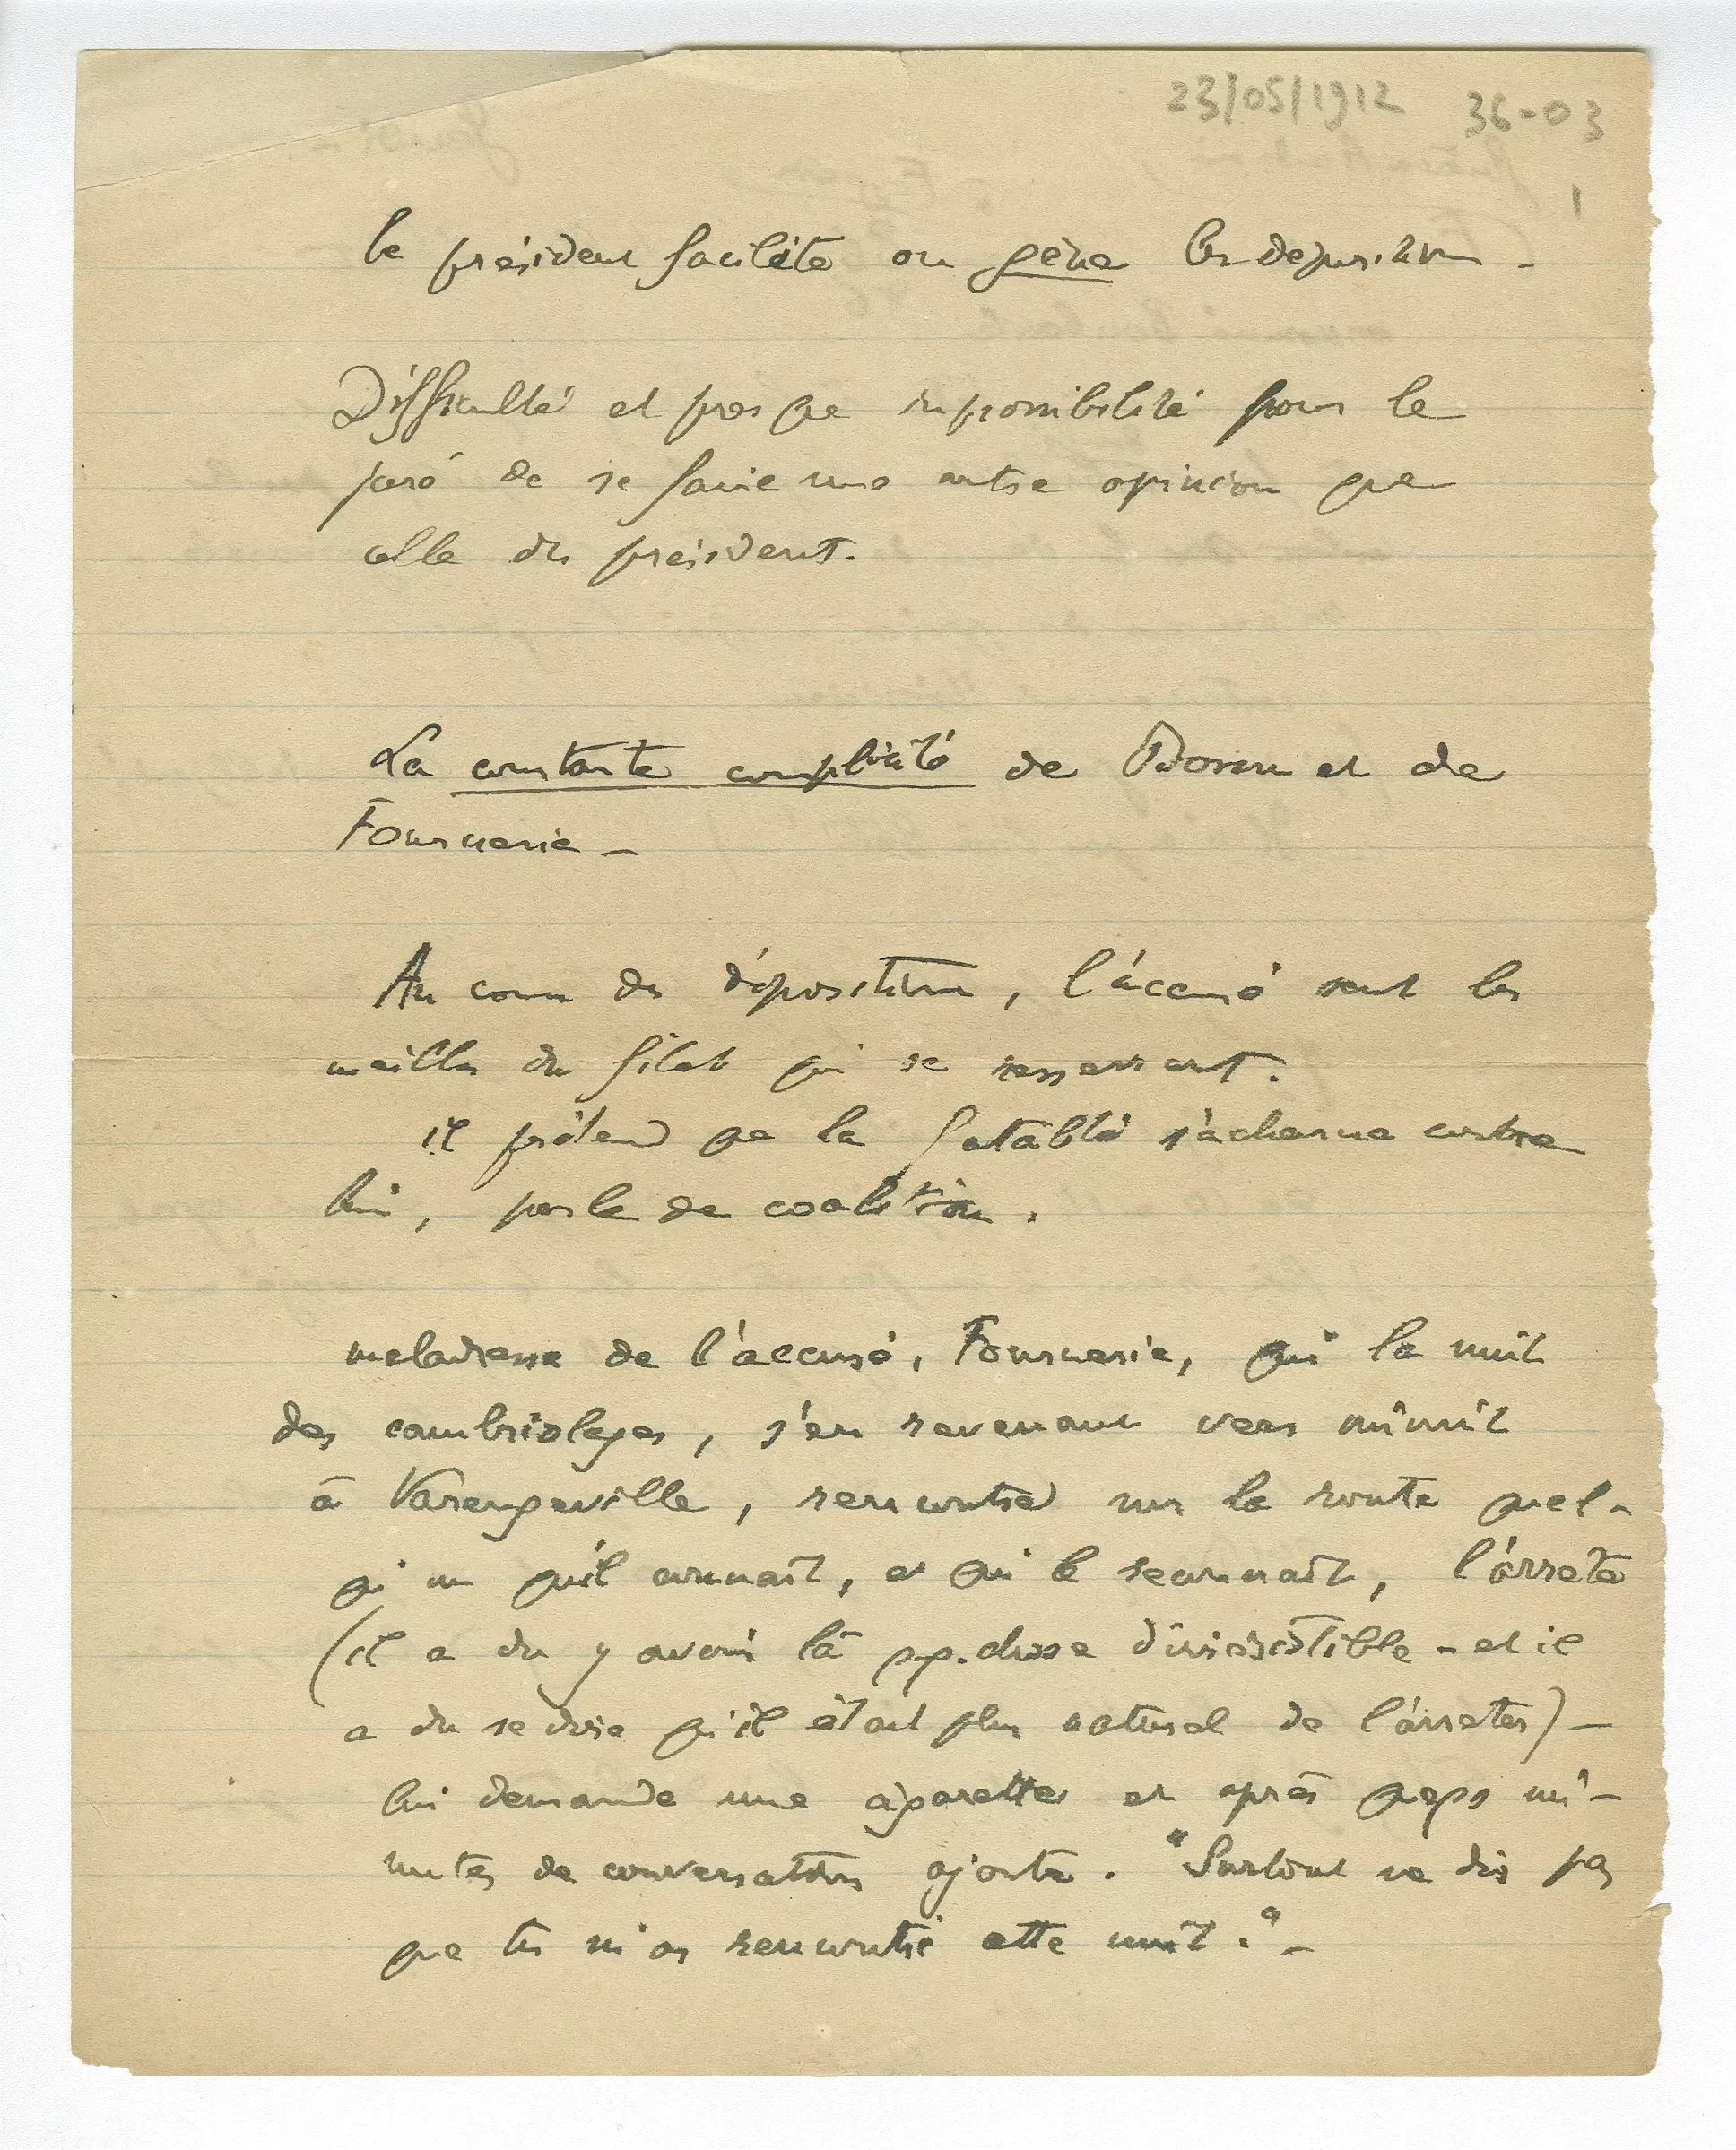 23/05/1912 36-03
1
le président facilite ou gène les dépositions -
Difficulté et presque impossibilité pour le
juré de se faire une autre opinion que
celle du président.
La constante complicité de et de
Fournerie -
Au cours des dépositions, l'accusé sent les
mailles du filet qui se resserrent.
il prétend que la fatalité s'acharne contre
lui, parle de coalition.
maladresse de l'accusé, Fournerie, qui la nuit
des cambriolages, s'en revenant vers minuit
à Varengeville, rencontre sur la route quel-
qu'un qu'il connaît, et qui le reconnaît, l'arrête
(il a du y avoir là qq. chose d'irrésistible - et il
a du se dire qu'il était plus naturel de l'arrêter) -
lui demande une cigarette et après qeqs mi-
nutes de conversation ajoute. "Surtout ne dis pas
que tu m'as rencontré cette nuit." -